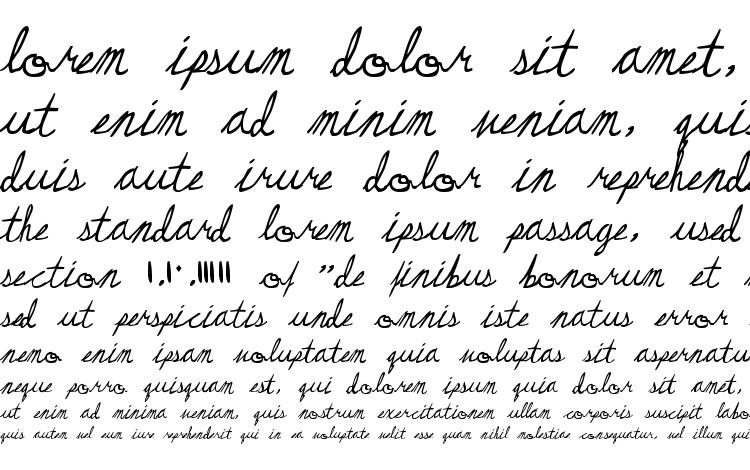 lorem ipsum dolor sit amet,
ut enim ad minim veniam, quis
duis aute irure dolor in reprehende
the standard lorem ipsum passage, used
section 1.10.32 of "de finibus bonorum et m
sed ut perspiciatis unde omnis iste natus error
nemo enim ipsam voluptatem quia voluptas sit aspernatu
neque porro quisquam est, qui dolorem ipsum quia dolor sit amet,
ut enim ad minima veniam, quis nostrum exercitationem ullam corporis suscipit labo
quis autem vel eum iure reprehenderit qui in ea voluptate velit esse quam nihil molestiae consequatur, vel illum qui